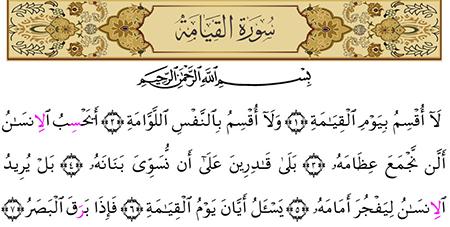 سُورَةُ ٱلْقِيَامَةِ
بِسْمِ ٱللَّهِ ٱلرَّحْمَٰنِ ٱلرَّحِيمِ
لَآ أُقْسِمُ بِيَوْمِ ٱلْقِيَٰمَةِ ﴿١﴾ وَلَآ أُقْسِمُ بِٱلنَّفْسِ ٱللَّوَّامَةِ ﴿٢﴾ أَيَحْسِبُ ٱلِانسَٰنُ
أَلَّن نَّجْمَعَ عِظَامَهُۥ ﴿٣﴾ بَلَىٰ قَٰدِرِينَ عَلَىٰٓ أَن نُّسَوِّىَ بَنَانَهُۥ ﴿٤﴾ بَلْ يُرِيدُ
ٱلِانسَٰنُ لِيَفْجُرَ أَمَامَهُۥ ﴿٥﴾ يَسْـَٔلُ أَيَّانَ يَوْمُ ٱلْقِيَٰمَةِ ﴿٦﴾ فَإِذَا بَرَقَ ٱلْبَصَرُ ﴿٧﴾